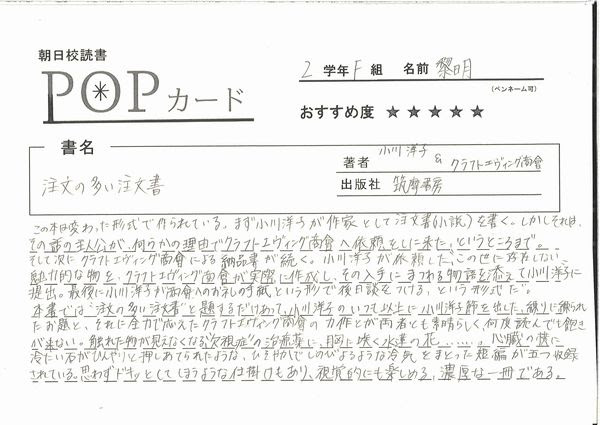 朝日校読書
POPカード
2 学年 F 組 名前 黎明
(ペンネーム可)
おすすめ度 ★★★★★
書名
注文の多い注文書
著者 小川 洋子 & クラフトエヴィング商會
出版社 筑摩書房
この本は変わった形式で作られている。まず小川洋子が作家として注文書(小説)を書く。しかしそれは、
その話の主人公が、何らかの理由でクラフトエヴィング商會へ依頼をしに来た、というところまで。
そして次にクラフトエヴィング商會による納品書が続く。小川洋子が依頼した、この世に存在しない
魅力的な物を、クラフトエヴィング商會が実際に作成し、その入手にまつわる物語を添えて小川洋子に
提出。最後に小川洋子が商會へのお礼の手紙という形で後日談をつける、という形式だ。
本書では"注文の多い注文書"と題するだけあって、小川洋子のいつも以上に小川洋子節を出した、練りに練られ
たお題と、それに全力で応えたクラフトエヴィング商會の力作とが両者とも素晴らしく何度読んでも飽き
が来ない。触れた物が見えなくなる"欠視症"の治療薬に、肺に咲く水蓮の花……。心臓の裏に
冷たい石がひんやりと押しあてられたような、ひそやかでしのびよるような冷気をまとった短編が五つ収録
されている。思わずドキッとしてしまうような仕掛けもあり、視覚的にも楽しめる、濃厚な一冊である。